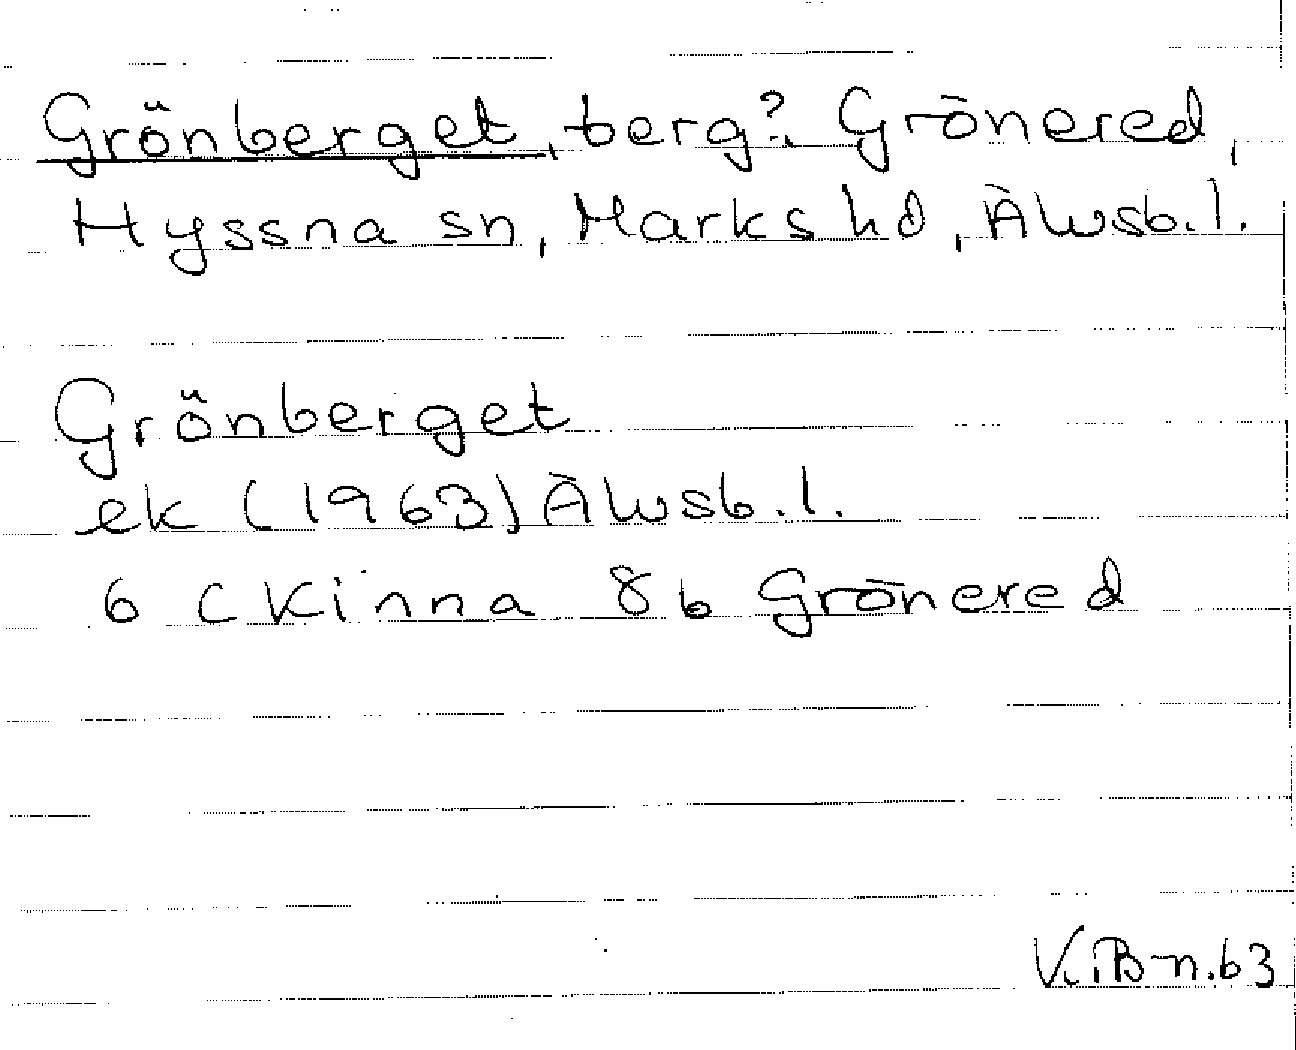 Grönberget, berg?, Grönered,
Hyssna sn, Marks hd, Älvsb.l.
Grönberget
ek (1963) Älvsb.l.
6 C Kinna 8b Grönered
K.B-n.63